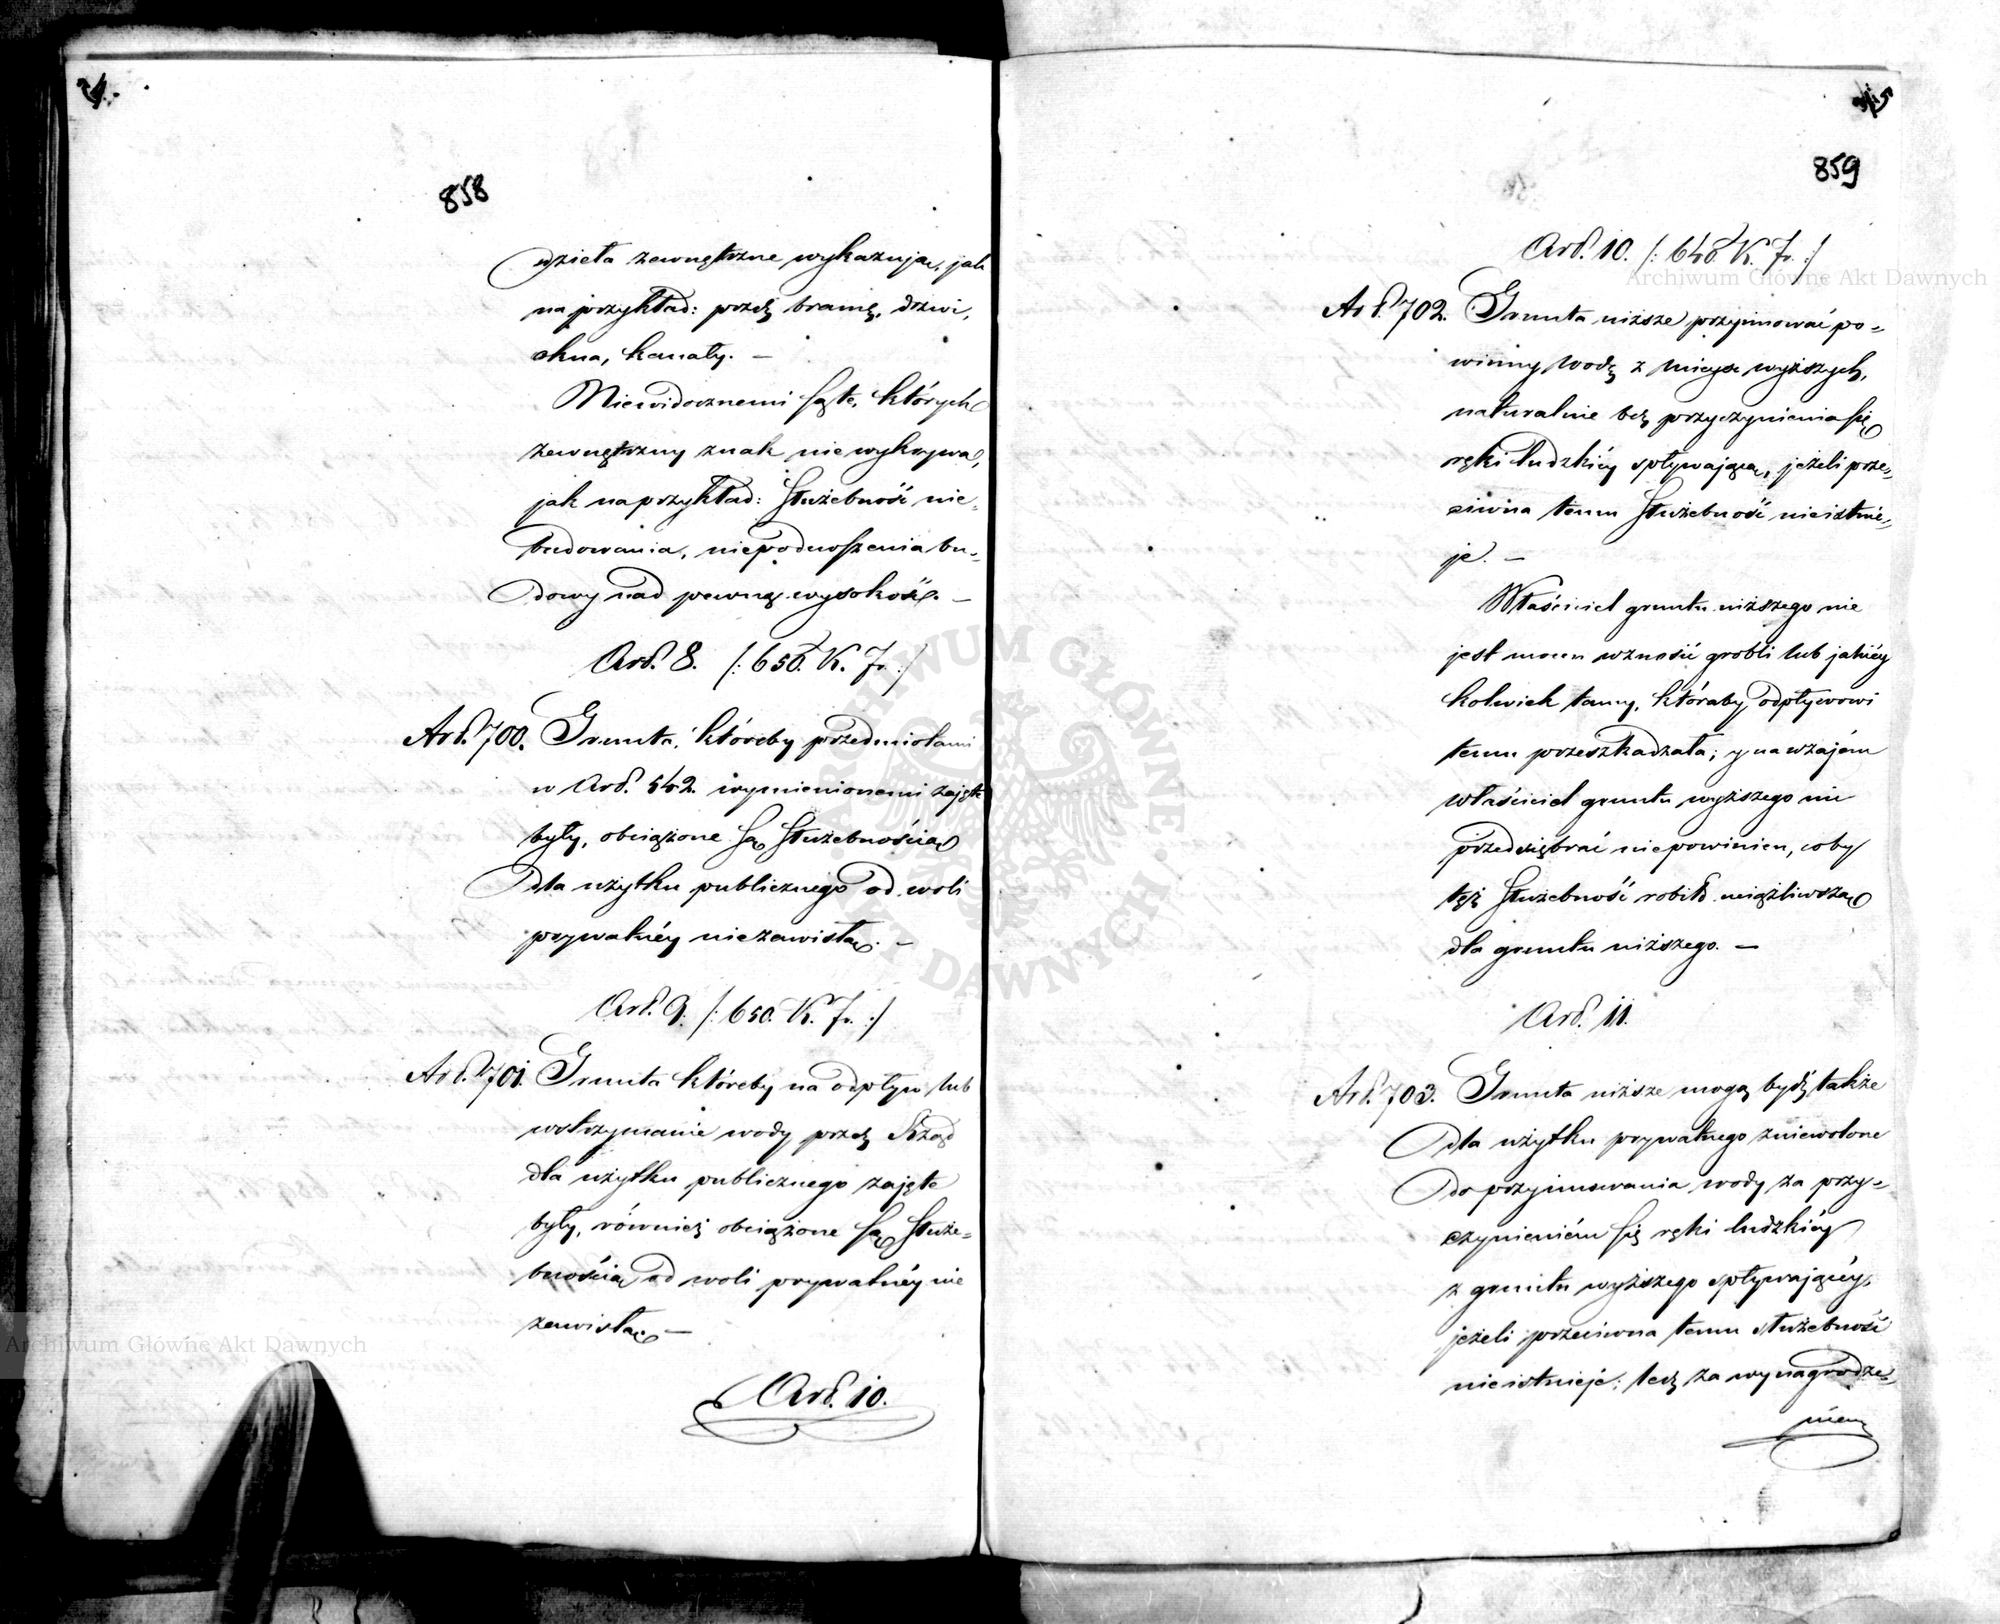 858
dzieła zewnętrzne wykazują, jak
na przykład: przez bramę, drzwi,
okna, kanały. —
Niewidocznemi są te, których
zewnętrzny znak nie wykrywa,
jak na przykład: służebność nie-
budowania, niepodnoszenia bu-
dowy nad pewną wysokość. —
Art. 8. /: 650. K. Fr. :/
Art. 700. Grunta, któreby przedmiotami
w Art. 542. wymienionemi zajęte
były, obciążone są służebnością
dla użytku publicznego od woli
prywatnéy niezawisłą. —
Art. 9. /: 650. K. Fr. :/
Art. 701. Grunta któreby na odpływ lub
wstrzymanie wody przez Rząd
dla użytku publicznego zajęte
były, również obciążone są służe-
bnością od woli prywatnéy nie
zawisłą. —
Art. 10.
859
Art. 10. /: 640. K. Fr. :/
Art. 702. Grunta niższe przyimować po-
winny wodę z mieysc wyższych,
naturalnie bez przyczynienia się
ręki ludzkiéy spływającą, jeżeli prze-
ciwna temu służebność nieistnie-
je. —
Właściciel gruntu niższego nie
jest mocen wznosić grobli lub jakiéy
kolwiek tamy, któraby odpływowi
temu przeszkadzała; y nawzajem
właściciel gruntu wyższego nic
przedsiębrać niepowinien, coby
też służebność robiło uciążliwszą
dla gruntu niższego. —
Art. 11.
Art. 703. Grunta niższe mogą bydź także
dla użytku prywatnego zniewolone
do przyimowania wody za przy-
czynieniém się ręki ludzkiéy
z gruntu wyższego spływającéy,
jeżeli przeciwna temu służebność
nieistnieje; lecz za wynagrodze-
niem
Archiwum Główne Akt Dawnych
Archiwum Główne Akt Dawnych
ARCHIWUM GŁÓWNE AKT DAWNYCH